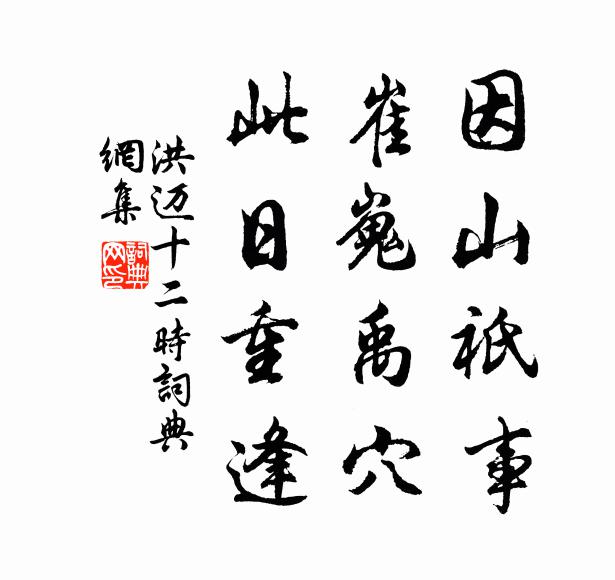 因山祇事
崔嵬禹穴
此日重逢
洪迈十二時詞典
網集
詞典網印